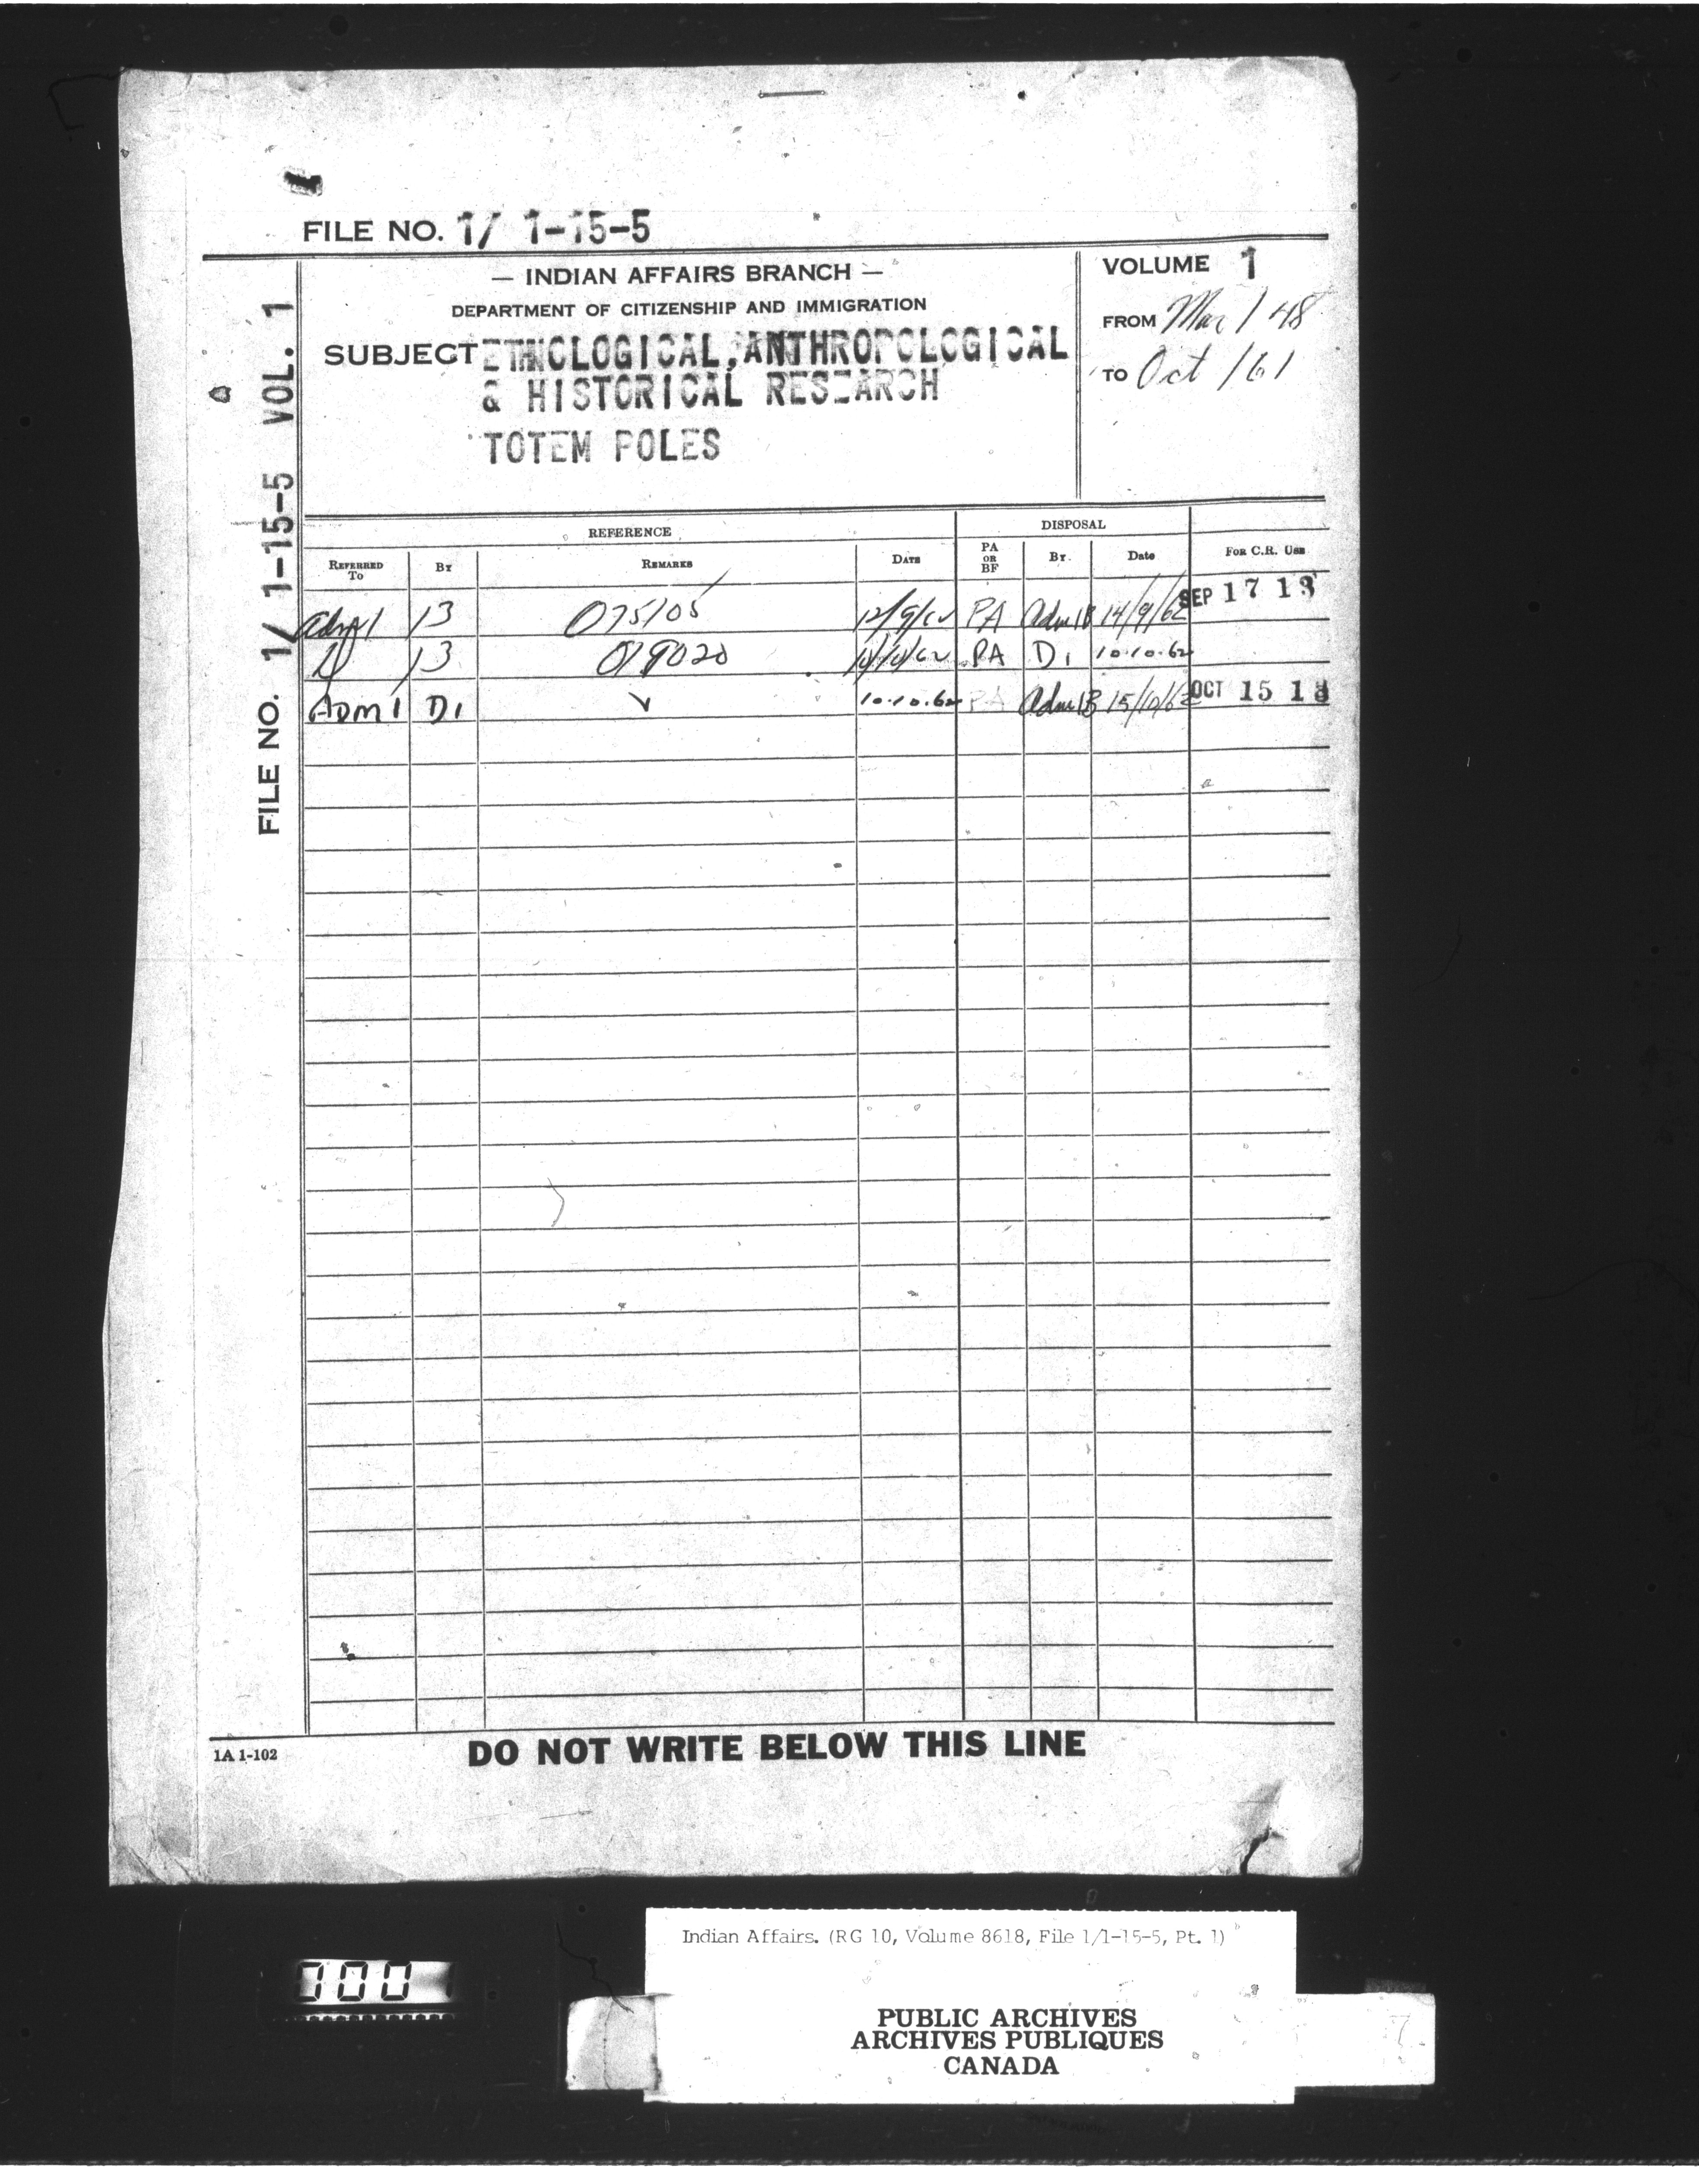 FILE NO. 1/ 1-15-5
— INDIAN AFFAIRS BRANCH —
DEPARTMENT OF CITIZENSHIP AND IMMIGRATION
SUBJECT ETHNOLOGICAL, ANTHROPOLOGICAL
& HISTORICAL RESEARCH
TOTEM POLES
VOLUME 1
FROM Mar/48
TO Oct/61
FILE NO. 1/ 1-15-5 VOL. 1
REFERENCE DISPOSAL
REFERRED TO BY REMARKS DATE PA OR BF BY. Date FOR C.R. USE
Adm 1 13 075105 12/9/62 PA Adm 1B 14/9/62 SEP 17 13
D 13 019020 PA D1 10.10.62
ADM 1 D1 10.10.62 PA Adm 1B 15/10/62 OCT 15 18
1A 1-102
DO NOT WRITE BELOW THIS LINE
Indian Affairs. (RG 10, Volume 8618, File 1/1-15-5, Pt. 1)
PUBLIC ARCHIVES
ARCHIVES PUBLIQUES
CANADA